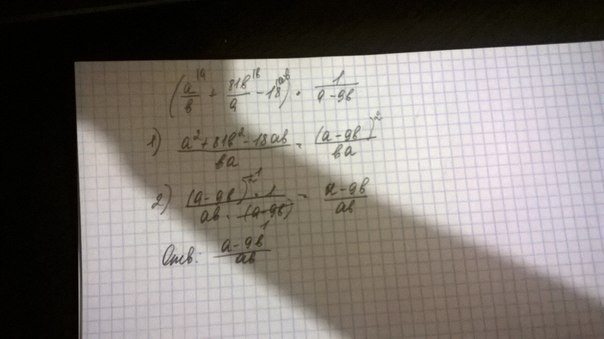 (a/b |a + 81b/a |b - 18 |ab) · 1/(a-9b)
1) (a²+81b²-18ab)/(ba) = (a-9b)²/(ba)
2) ((a-9b)²¹ · 1)/(ab · (a-9b)₁) = (a-9b)/(ab)
Отв: (a-9b)/(ab)